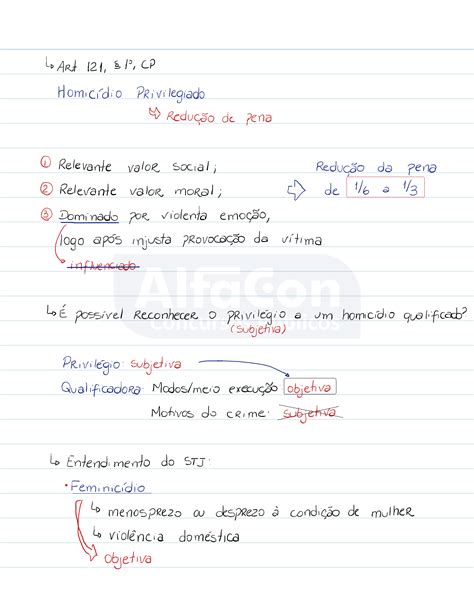 ↳ Art 121, § 1º, CP
Homicídio Privilegiado
↳ Redução de pena
① Relevante valor social;
Redução da pena
② Relevante valor moral;
⇨ de 1/6 a 1/3
③ Dominado por violenta emoção,
logo após injusta provocação da vítima
influenciado
AlfaCon
Concursos Públicos
↳ É possível reconhecer o privilégio a um homicídio qualificado?
(subjetiva)
Privilégio: subjetiva
Qualificadora: Modos/meio execução objetiva
Motivos do crime: subjetiva
↳ Entendimento do STJ:
• Feminicídio
↳ menosprezo ou desprezo à condição de mulher
↳ violência doméstica
objetiva